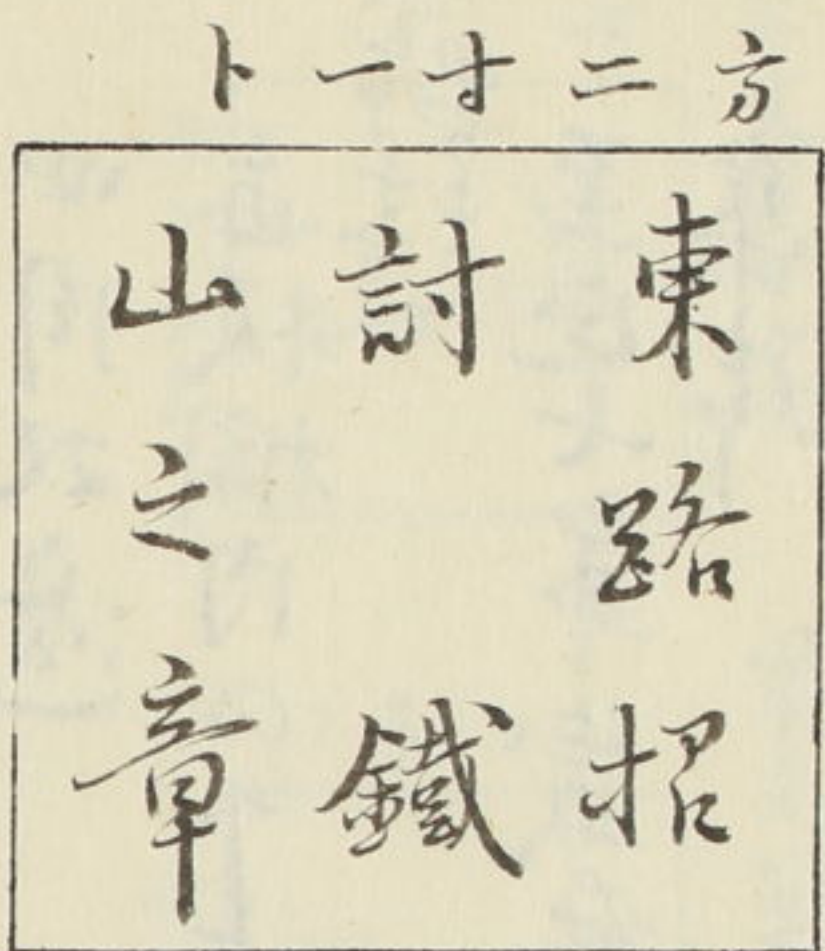 方二寸一卜
東路招
討鐵
山之章